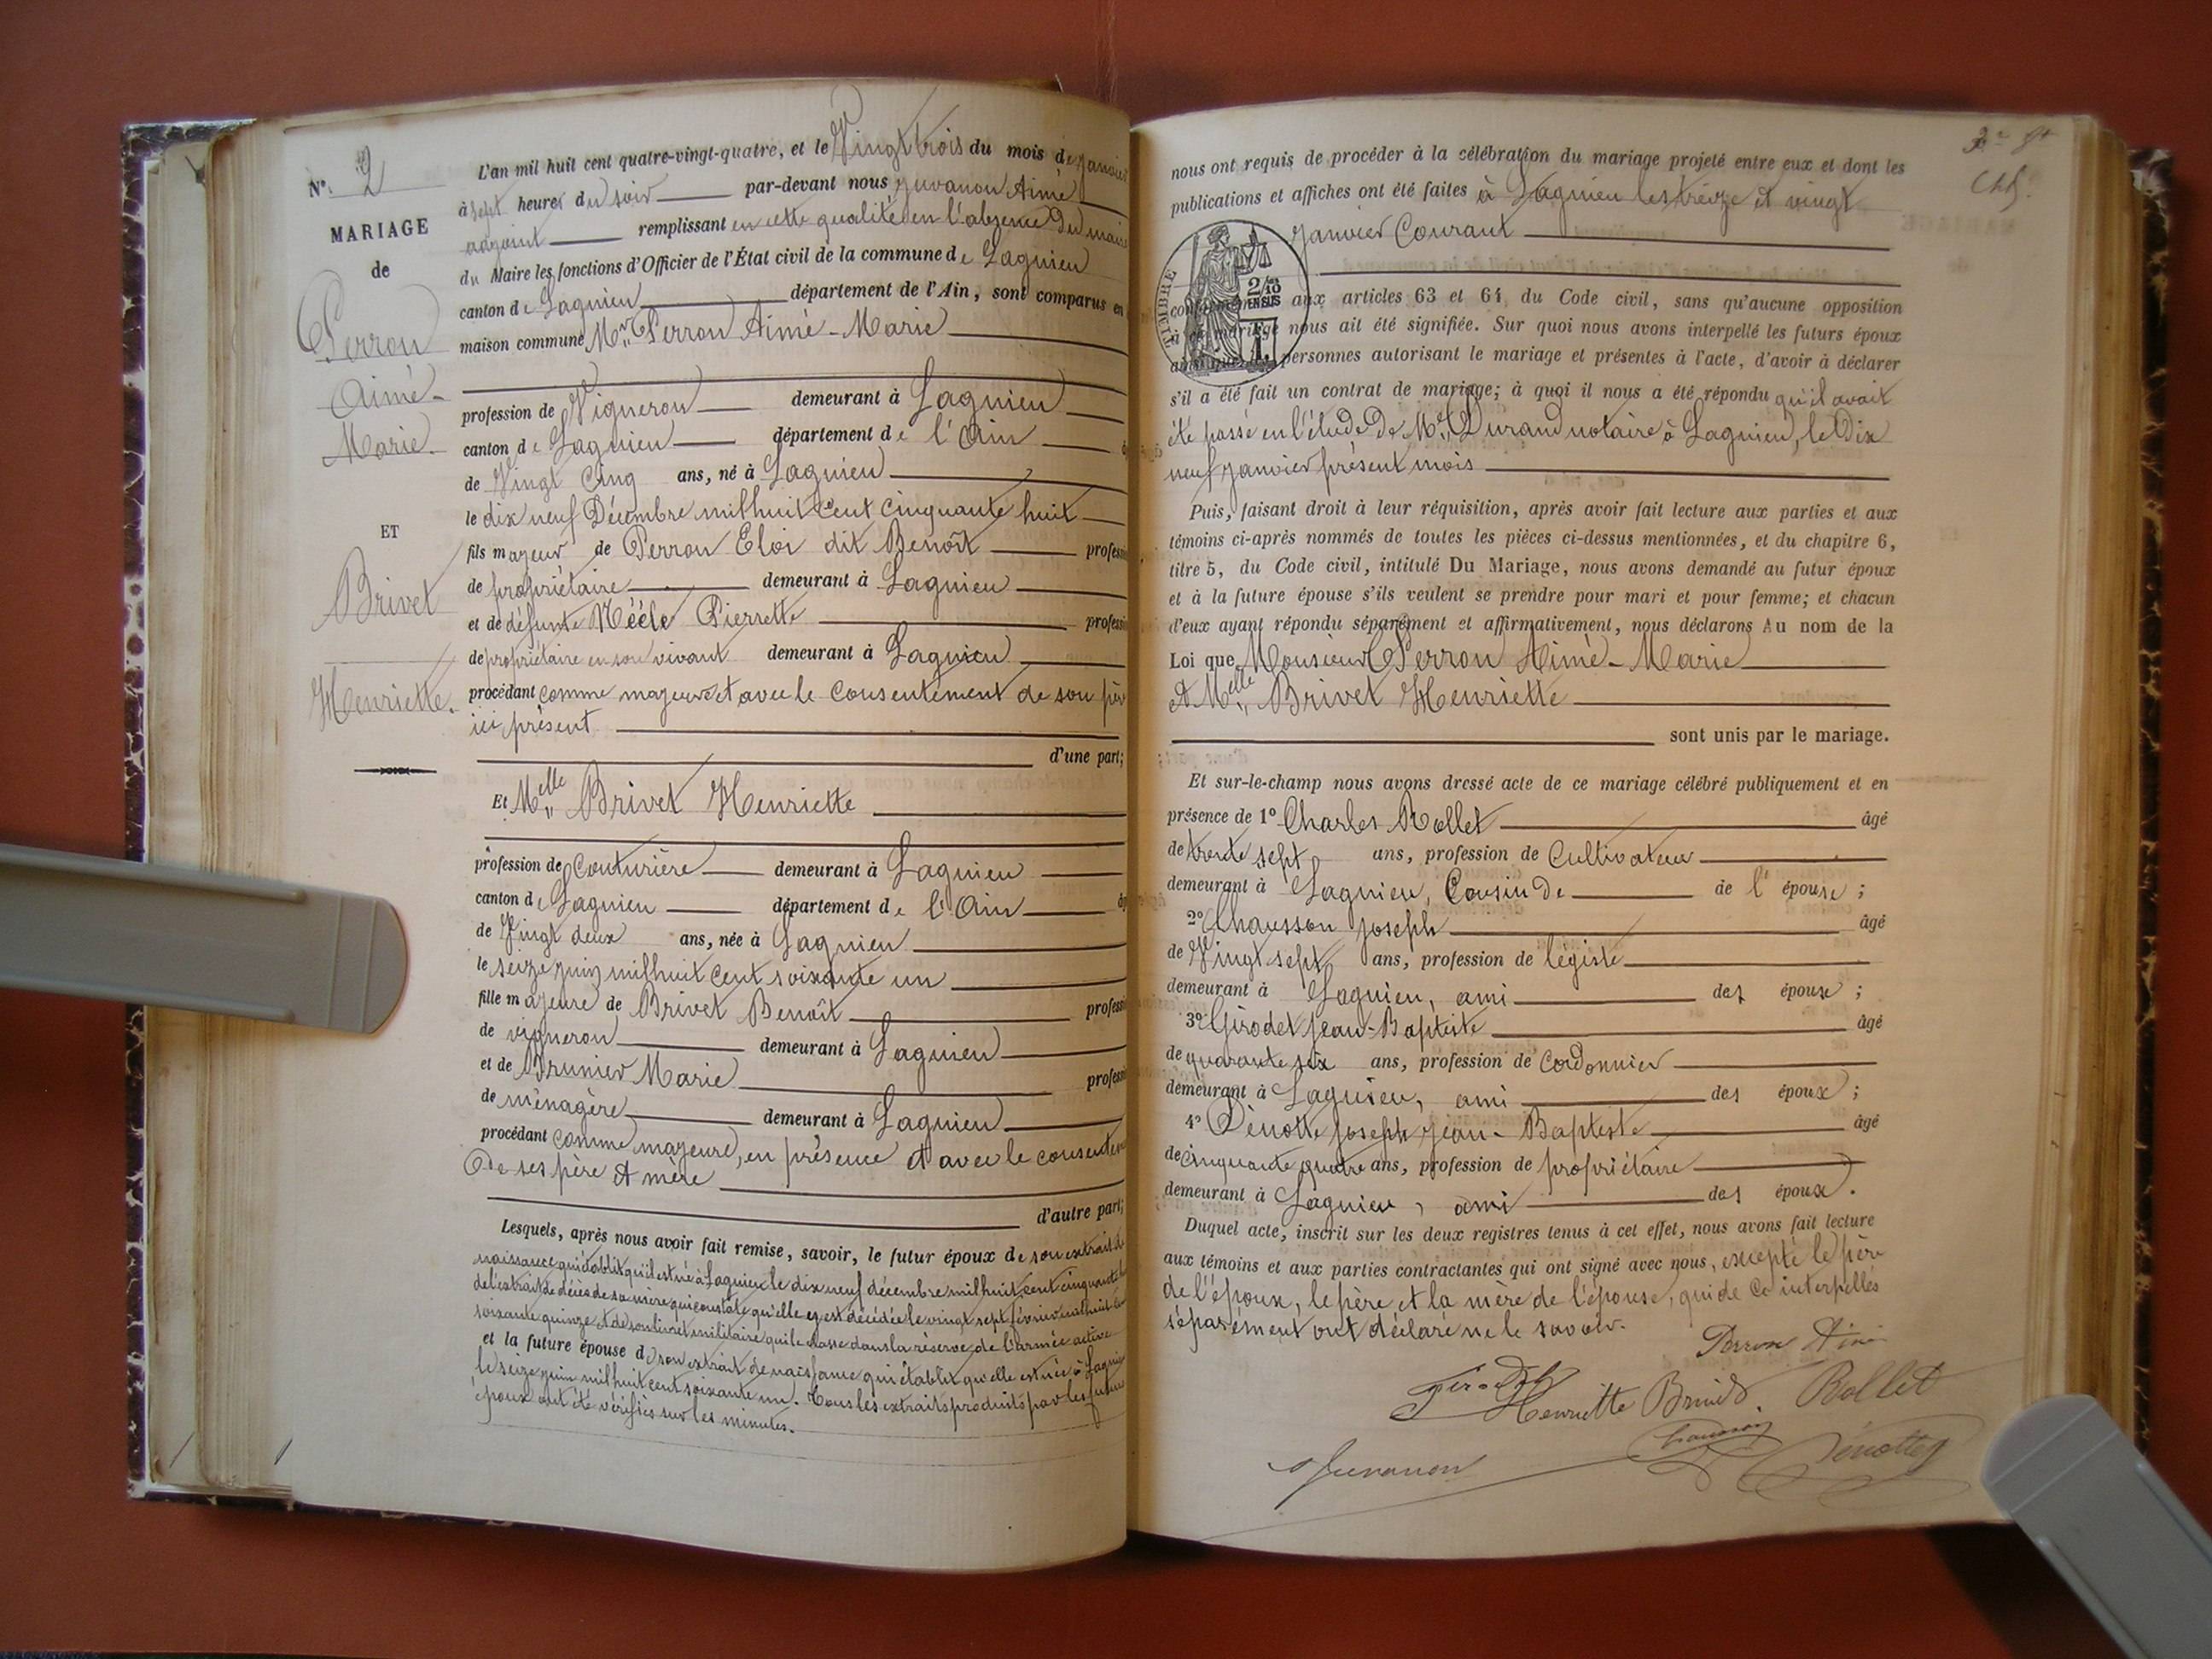 N°. 2
MARIAGE
de
Perron
Aimé-
Marie
ET
Brivet
Henriette.
L'an mil huit cent quatre-vingt-quatre, et le Vingt trois du mois de janvier
à sept heures du soir par-devant nous Juvanon Aimé
adjoint remplissant en cette qualité en l'absence du maire
du Maire les fonctions d'Officier de l'État civil de la commune de Lagnieu
canton de Lagnieu département de l'Ain, sont comparus en
maison commune Mr. Perron Aimé-Marie
profession de Vigneron demeurant à Lagnieu
canton de Lagnieu département de l'Ain
de Vingt Cinq ans, né à Lagnieu
le dix neuf Décembre mil huit Cent cinquante huit
fils majeur de Perron Eloi dit Benoît profess
de propriétaire demeurant à Lagnieu
et de défunte Pierrette professi
de propriétaire en son vivant demeurant à Lagnieu
procédant comme majeur et avec le consentement de son père
ici présent
d'une part;
Et Melle Brivet Henriette
profession de Couturière demeurant à Lagnieu
canton de Lagnieu département de l'Ain
de Vingt deux ans, née à Lagnieu
le seize juin mil huit Cent soixante un
fille majeure de Brivet Benoît profess
de vigneron demeurant à Lagnieu
et de Brunier Marie professi
de ménagère demeurant à Lagnieu
procédant comme majeure, en présence et avec le consentem
de ses père et mère
d'autre part;
Lesquels, après nous avoir fait remise, savoir, le futur époux de son extrait de
naissance qui établit qu'il est né à Lagnieu le dix neuf décembre mil huit cent cinquante
de l'extrait de décès de sa mère qui constate qu'elle est décédée le vingt sept février mil huit
soixante quinze et de son livret militaire qui le classe dans la réserve de l'armée active
et la future épouse de son extrait de naissance qui établit qu'elle est née à Lagnieu
le seize juin mil huit cent soixante un. Tous les extraits produits par les futurs
époux ont été vérifiés sur les minutes.
nous ont requis de procéder à la célébration du mariage projeté entre eux et dont les
publications et affiches ont été faites à Lagnieu les treize et vingt
janvier Courant
TIMBRE
2/10
EN SUS
aux articles 63 et 64 du Code civil, sans qu'aucune opposition
mariage nous ait été signifiée. Sur quoi nous avons interpellé les futurs époux
personnes autorisant le mariage et présentes à l'acte, d'avoir à déclarer
s'il a été fait un contrat de mariage; à quoi il nous a été répondu qu'il avait
été passé en l'étude de Me. Durand notaire à Lagnieu, le Dix
neuf janvier présent mois
Puis, faisant droit à leur réquisition, après avoir fait lecture aux parties et aux
témoins ci-après nommés de toutes les pièces ci-dessus mentionnées, et du chapitre 6,
titre 5, du Code civil, intitulé Du Mariage, nous avons demandé au futur époux
et à la future épouse s'ils veulent se prendre pour mari et pour femme; et chacun
d'eux ayant répondu séparément et affirmativement, nous déclarons Au nom de la
Loi que Monsieur Perron Aimé-Marie
et Melle Brivet Henriette
sont unis par le mariage.
Et sur-le-champ nous avons dressé acte de ce mariage célébré publiquement et en
présence de 1° Charles Rollet âgé
de trente sept ans, profession de Cultivateur
demeurant à Lagnieu, Cousin de de l'épouse;
2° Chausson Joseph âgé
de Vingt sept ans, profession de légiste
demeurant à Lagnieu, ami des époux;
3° Girodet Jean-Baptiste âgé
de quarante six ans, profession de Cordonnier
demeurant à Lagnieu, ami des époux;
4° Dénotte Joseph Jean-Baptiste âgé
de Cinquante quatre ans, profession de propriétaire
demeurant à Lagnieu, ami des époux.
Duquel acte, inscrit sur les deux registres tenus à cet effet, nous avons fait lecture
aux témoins et aux parties contractantes qui ont signé avec nous, excepté le père
de l'époux, le père et la mère de l'épouse, qui de ce interpellés
séparément ont déclaré ne le savoir.
Perron Aimé
Girodet
Henriette Brivet. Rollet
Chausson
Juvanon